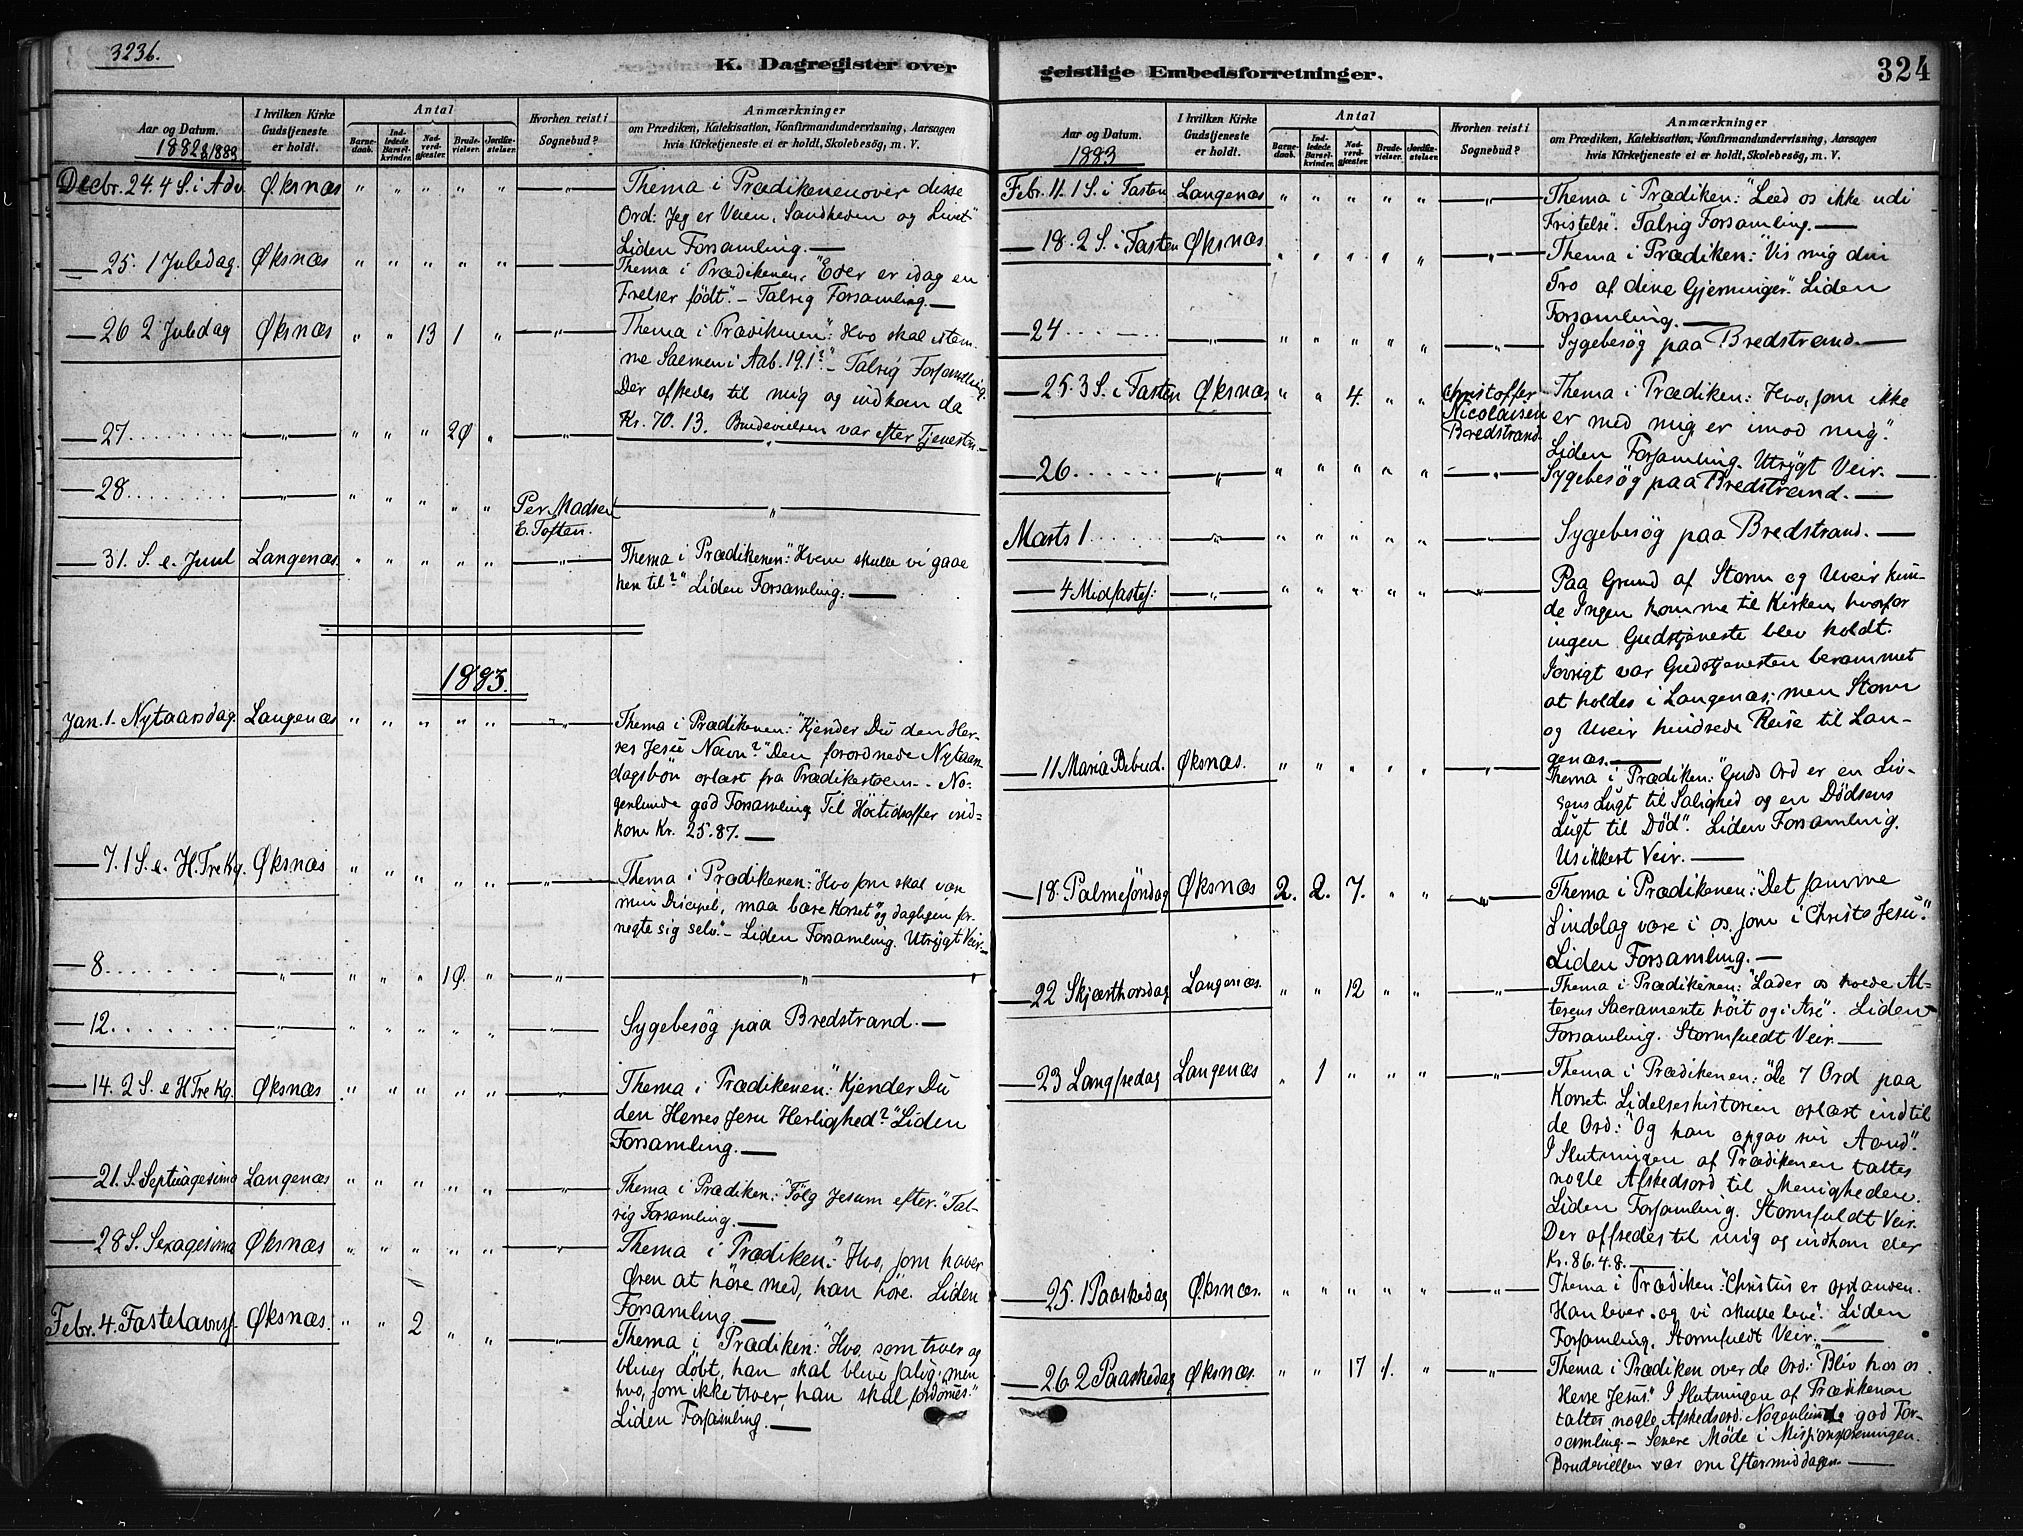 3236.
K. Dagregister over
Aar og Datum.
1882 & 1883
I hvilken Kirke
Gudstjeneste
er holdt.
Antal
Barne-
daab.
Ind-
ledede
Barsel-
kvinder.
Nad-
verd-
gjæster.
Brude-
vielser.
Jordfæ-
stelser.
Hvorhen reist i
Sognebud?
Anmærkninger
om Prædiken, Katekisation, Konfirmandundervisning, Aarsagen
hvis Kirketjeneste ei er holdt, Skolebesøg, m. V.
Decbr. 24. 4 S. i Adv Øksnæs " " " " " — " — Thema i Prædikenen over disse
Ord: Jeg er Veien, Sandheden og Livet"
Liden Forsamling. —
— 25. 1 Juledag. Øksnæs " " " " " — " — Thema i Prædikenen: "Eder er idag en
Frelser født". – Talrig Forsamling. —
— 26 2 Juledag Øksnæs " " 13 1 " — " — Thema i Prædikenen": Hvo skal istem-
me Salmen i Aab. 19.1?" – Talrig Forsamling.
Der ofredes til mig og indkom da
Kr. 70.13. Brudevielsen var efter Tjenesten. —
— 27. — " — " " " 2Ø " — " — "
— 28 — " — " " " " " Per Madsen — " —
E. Toften.
— 31. S. e. Juul Langenæs. " " " " " — " — Thema i Prædikenen": Hvem skulle vi gaae
hen til?" Liden Forsamling. —
1883.
Jan. 1. Nytaarsdag. Langenæs " " " " " — " — Thema i Prædikenen: "Kjender Du den Her-
res Jesu Navn?" Den forordnede Nytaars-
dagsbøn oplæst fra Prædikestolen. – No-
genlunde god Forsamling. Til Høitidsoffer ind-
kom Kr. 25.87. —
— 7. 1 S. e. H. Tre Kg. Øksnæs " " " " " — " — Thema i Prædikenen: "Hvo som skal være
min Discipel, maa bære Korset" og dagligen for-
negte sig selv". – Liden Forsamling. Utrygt Veir. —
— 8. — " — " " " 1Ø. " — " — — " —
— 12. — " — " " " " " — " — Sygebesøg paa Bredstrand. —
— 14. 2 S. e H Tre Kg. Øksnæs " " " " " — " — Thema i Prædikenen": Kjender Du
den Herres Jesu Herlighed?" Liden
Forsamling. —
— 21. S. Septuagesima Langenæs " " " " " — " — Thema i Prædiken: "Følg Jesum efter." Tal-
rig Forsamling. —
— 28 S. Sexagesima Øksnæs " " " " " — " — Thema i Prædiken": Hvo, som haver
Øren at høre med, han høre. Liden
Forsamling. —
Febr. 4. Fastelavnss. Øksnæs. " " 2 " " — " — Thema i Prædiken: "Hvo, som troer og
bliver døbt, han skal blive salig, men
hvo, som ikke troer, han skal fordømes".
Liden Forsamling. —
geistlige Embedsforretninger.
324
Aar og Datum.
1883
I hvilken Kirke
Gudstjeneste
er holdt.
Antal
Barne-
daab.
Ind-
ledede
Barsel-
kvinder.
Nad-
verd-
gjæster.
Brude-
vielser.
Jordfæ-
stelser.
Hvorhen reist i
Sognebud?
Anmærkninger
om Prædiken, Katekisation, Konfirmandundervisning, Aarsagen
hvis Kirketjeneste ei er holdt, Skolebesøg, m. V.
Febr. 11. 1 S. i Fasten Langenæs " " " " " — " — Thema i Prædiken: "Leed os ikke udi
Fristelse". Talrig Forsamling. —
— 18. 2 S. i Fasten Øksnæs. " " " " " — " — Thema i Prædiken: "Vis mig din
Tro af dine Gjerninger". Liden
Forsamling. —
— 24 — " — " " " " " — " — Sygebesøg paa Bredstrand. —
— 25. 3 S. i Fasten Øksnæs " " 4. " " Christoffer Thema i Prædiken: Hvo, som ikke
Nicolaisen er med mig, er imod mig".
Bredstrand. Liden Forsamling. Utrygt Veir. —
— 26. — " — " " " " " — " — Sygebesøg paa Bredstrand. —
Marts 1 — " — " " " " " — " — Sygebesøg paa Bredstrand. —
— 4 Midfastes: — " — " " " " " — " — Paa Grund af Storm og Uveir kun-
de Ingen komme til Kirken, hvorfor
ingen Gudstjeneste blev holdt.
Iøvrigt var Gudstjenesten berammet
at holdes i Langenæs; men Storm
og Uveir hindrede Reise til Lan-
genæs. —
— 11 Maria Bebud. Øksnæs. " " " " " — " — Thema i Prædiken: "Guds Ord er en Liv-
sens Lugt til Salighed og en Dødsens
Lugt til Død". Liden Forsamling.
Usikkert Veir. —
— 18. Palmesøndag Øksnæs 2. 2. 7. " " — " — Thema i Prædikenen: "Det samme
Sindelag være i os, som i Christo Jesu".
Liden Forsamling. —
— 22 Skjærthorsdag Langenæs. " " 12 " " — " — Thema i Prædikenen: "Lader os holde Al-
terens Sacramente høit og i Ære". Liden
Forsamling. Stormfuldt Veir. —
— 23 Langfredag Langenæs " 1 " " " — " — Thema i Prædikenen: "De 7 Ord paa
Korset. Lidelseshistorien oplæst indtil
de Ord: "Og han opgav sin Aand".
I Slutningen af Prædikenen taltes
nogle Afskedsord til Menigheden.
Liden Forsamling. Stormfuldt Veir.
Der offredes til mig og indkom der
Kr. 86.48. —
— 25. 1 Paaskedag Øksnæs. " " " " " — " — Thema i Prædiken: "Christus er opstanden.
Han lever og vi skulle leve". Liden
Forsamling. Stormfuldt Veir. —
— 26 2 Paaskedag Øksnæs. " " 17 1. " — " — Thema i Prædiken over de Ord: "Bliv hos os
Herre Jesus". I Slutningen af Prædikenen
taltes nogle Afskedsord. Nogenlunde god For-
samling – Senere Møde i Missionsforeningen.
Brudevielsen var om Eftermiddagen —